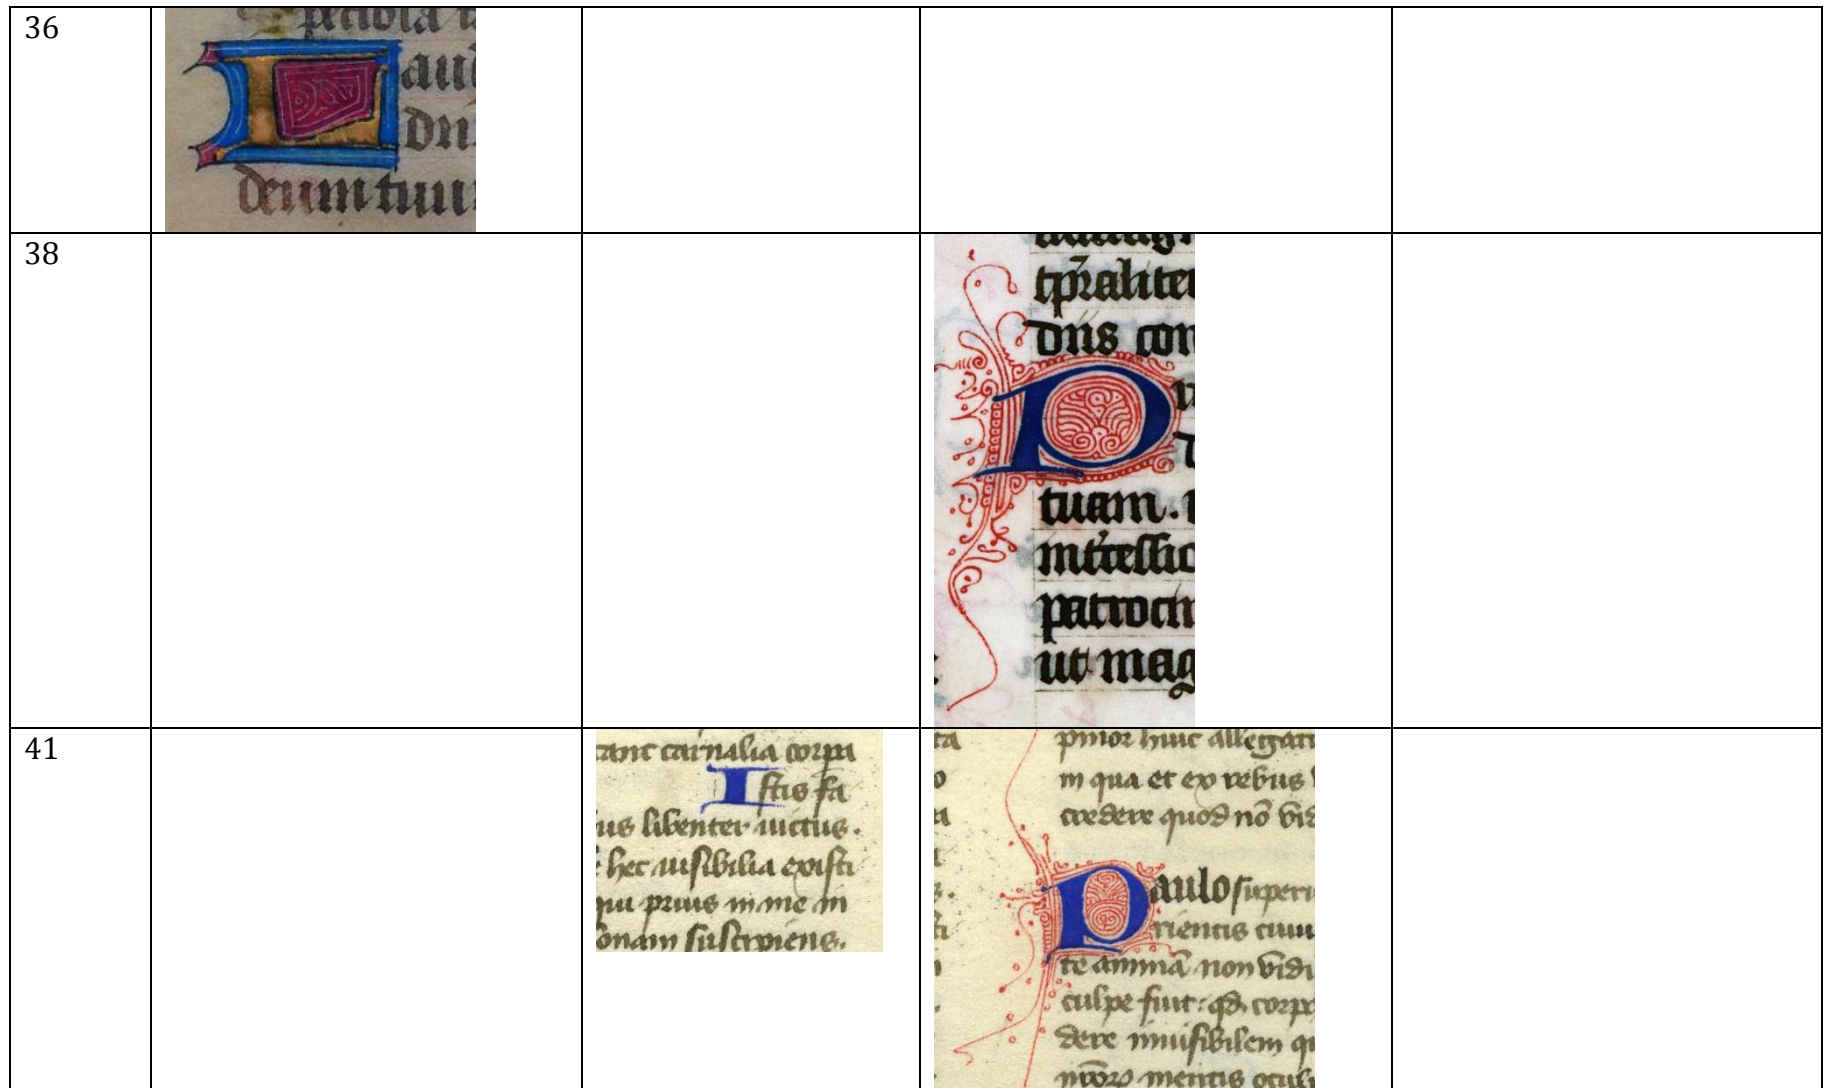 36
peciosa
L
au
dn
deum tuu
38
tp̄ralite
dn̄s con
P
tuam.
int̄cessio
patroci
ut mag
41
tant carnalia corpa
I stis fa
us libenter uictus.
hec uisibilia existi
qui prius in me in
sonam suscipiens.
prior huic allegati
in qua et ex rebus
credere quod nō vid
Paulo superi
rientis cuiu
te animā non vidi
culpe fuit: qd corpo
dere inuisibilem qu
mentis oculi